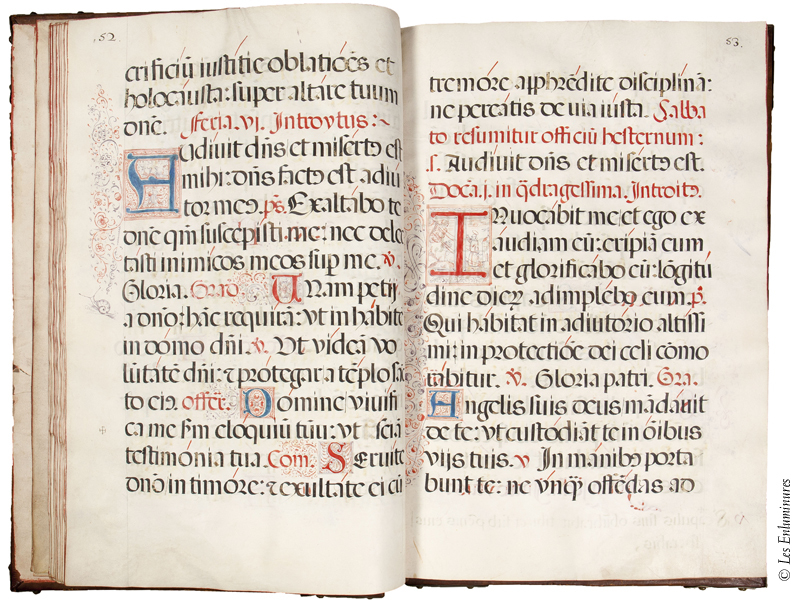 52.
crificiũ iustitie oblatiões et
holocausta: super altáre tuum
dñe. feria. vi. Introytus:
Audiuit dñs et misertꝯ est
mihi: dñs factꝯ est adiu
tor meꝯ. ps. Exaltabo te
dñe qm̃ suscepisti me: nec dele
tasti inimicos meos sup me. ℣.
Gloria. Grad. Unam petij
a dño: hãc requirã: vt in hábitẽ
in domo dñi. ℣. Ut videã vo
lũtatẽ dñi: ⁊ protegar a tẽplo sã
to eiꝯ. offer. Domine viuifi
ca me sm eloquiũ tuũ: vt sciã
testimónia tua. Com. Seruite
dño in timóre: ⁊ exultáte ei cũ
53.
tremóre apphẽdite disciplinã:
ne pereátis de via iusta. Sabba
to resumitur officiũ hesternum:
s. Audiuit dñs et misertꝯ est.
Doca. j. in q̃dragessima. Introitꝯ.
INuocábit me, et ego ex
áudiam eũ: erípiã eum
et glorificábo eũ: lõgitú
dine dierꝝ adimplébo eum. ps.
Qui hábitat in adiutório altíssi
mi: in protectióe dei celi cõmo
rábitur. ℣. Gloria patri. Gra.
Angelis suis deus mãdáuit
de te: vt custódiãt te in óibus
vijs tuis. v In mánibꝯ porta
bunt te: ne vnq̃ offẽdas ad
© Les Enluminures